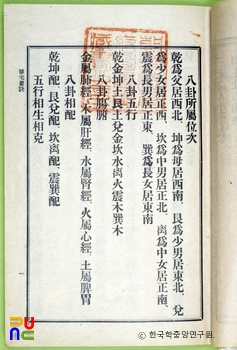 八卦所屬位次
乾爲父居西北 坤爲母居西南 艮爲少男居東北 兌
爲少女居正西 坎爲中男居正北 离爲中女居正南
震爲長男居正東 巽爲長女居東南
八卦五行
乾金坤土艮土兌金坎水离火震木巽木
八卦臟腑
金屬肺經 木屬肝經 水屬腎經 火屬心經 土屬脾胃
八卦相配
乾坤配 艮兌配 坎离配 震巽配
五行相生相克
一
한국학중앙연구원